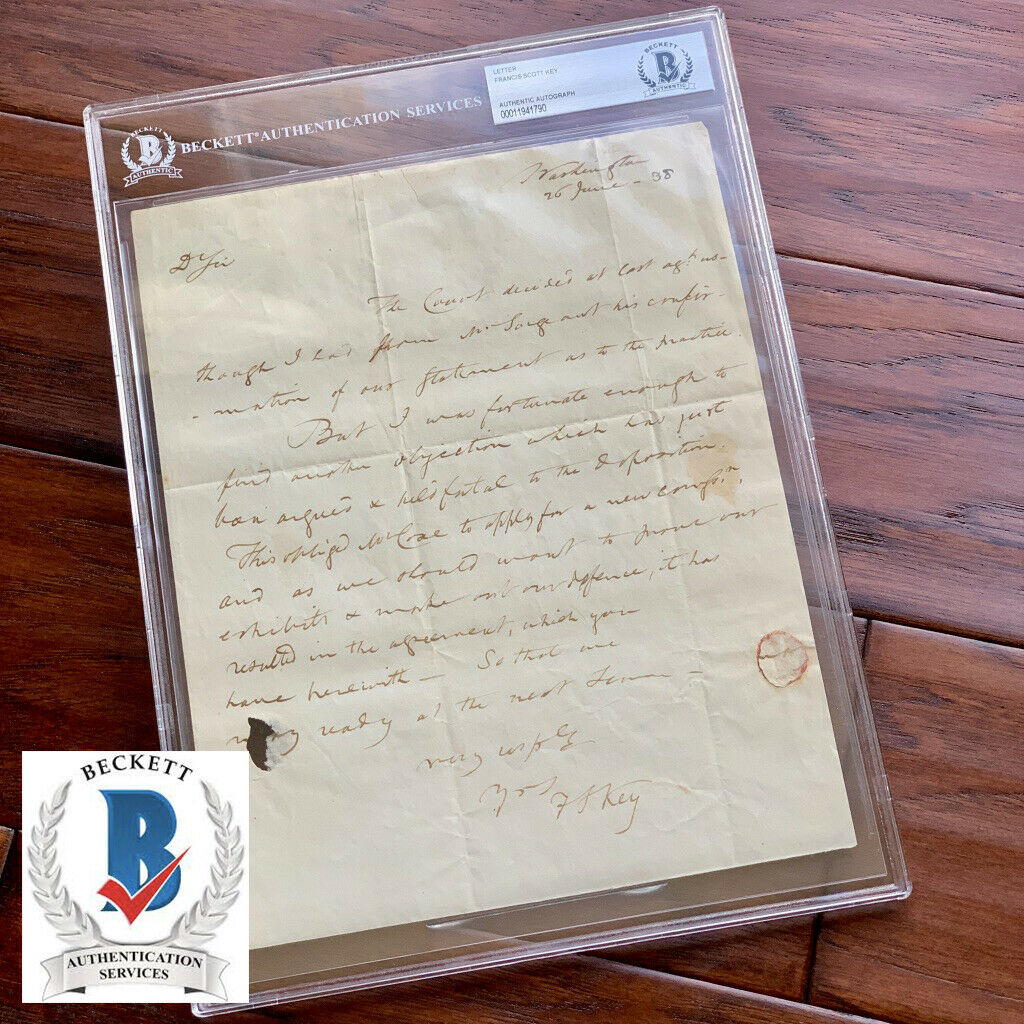 BECKETT
AUTHENTIC
BECKETT® AUTHENTICATION SERVICES
LETTER
FRANCIS SCOTT KEY
AUTHENTIC AUTOGRAPH
00011941790
BECKETT
AUTHENTIC
Washington
26 June - 38
D Sir
The Court decided at last agt. us -
though I had from Mr Sergeant his confir -
- mation of our statement as to the practice.
But I was fortunate enough to
find another objection which has just
been argued & held fatal to the deposition.
This obliged Mr Coxe to apply for a new
and as we should want to prove our
exhibits & make out our defence, it has
resulted in the agreement, which you
have herewith - So that we
may ready at the next Term -
very
Yrs
F S Key
BECKETT
B
AUTHENTICATION
SERVICES